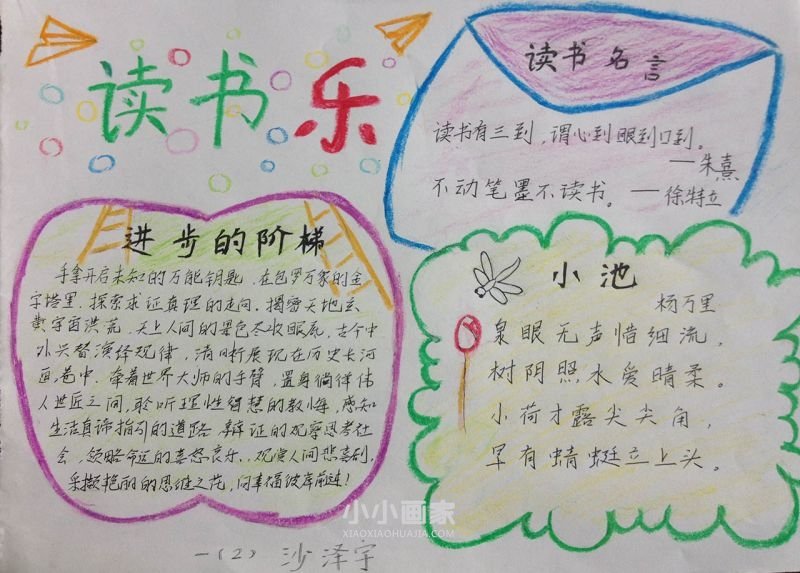 读书乐
读书名言
读书有三到，谓心到眼到口到。
——朱熹
不动笔墨不读书。——徐特立
进步的阶梯
手拿开启未知的万能钥匙，在包罗万象的金
字塔里，探索求证真理的走向，揭密天地玄
黄宇宙洪荒，天上人间的景色尽收眼底，古今中
外兴替演绎规律，清晰展现在历史长河
画卷中，牵着世界大师的手臂，置身徜徉伟
人世匠之间，聆听理性智慧的教悔，感知
生活真谛指引的道路，辩证的观察思考社
会，领略命运的喜怒哀乐，观演人间悲喜剧，
采撷艳丽的思维之花，问幸福彼岸前进！
小池
杨万里
泉眼无声惜细流，
树阴照水爱晴柔。
小荷才露尖尖角，
早有蜻蜓立上头。
小小画家
XIAOXIAOHUAJIA.COM
一（2） 沙泽宇